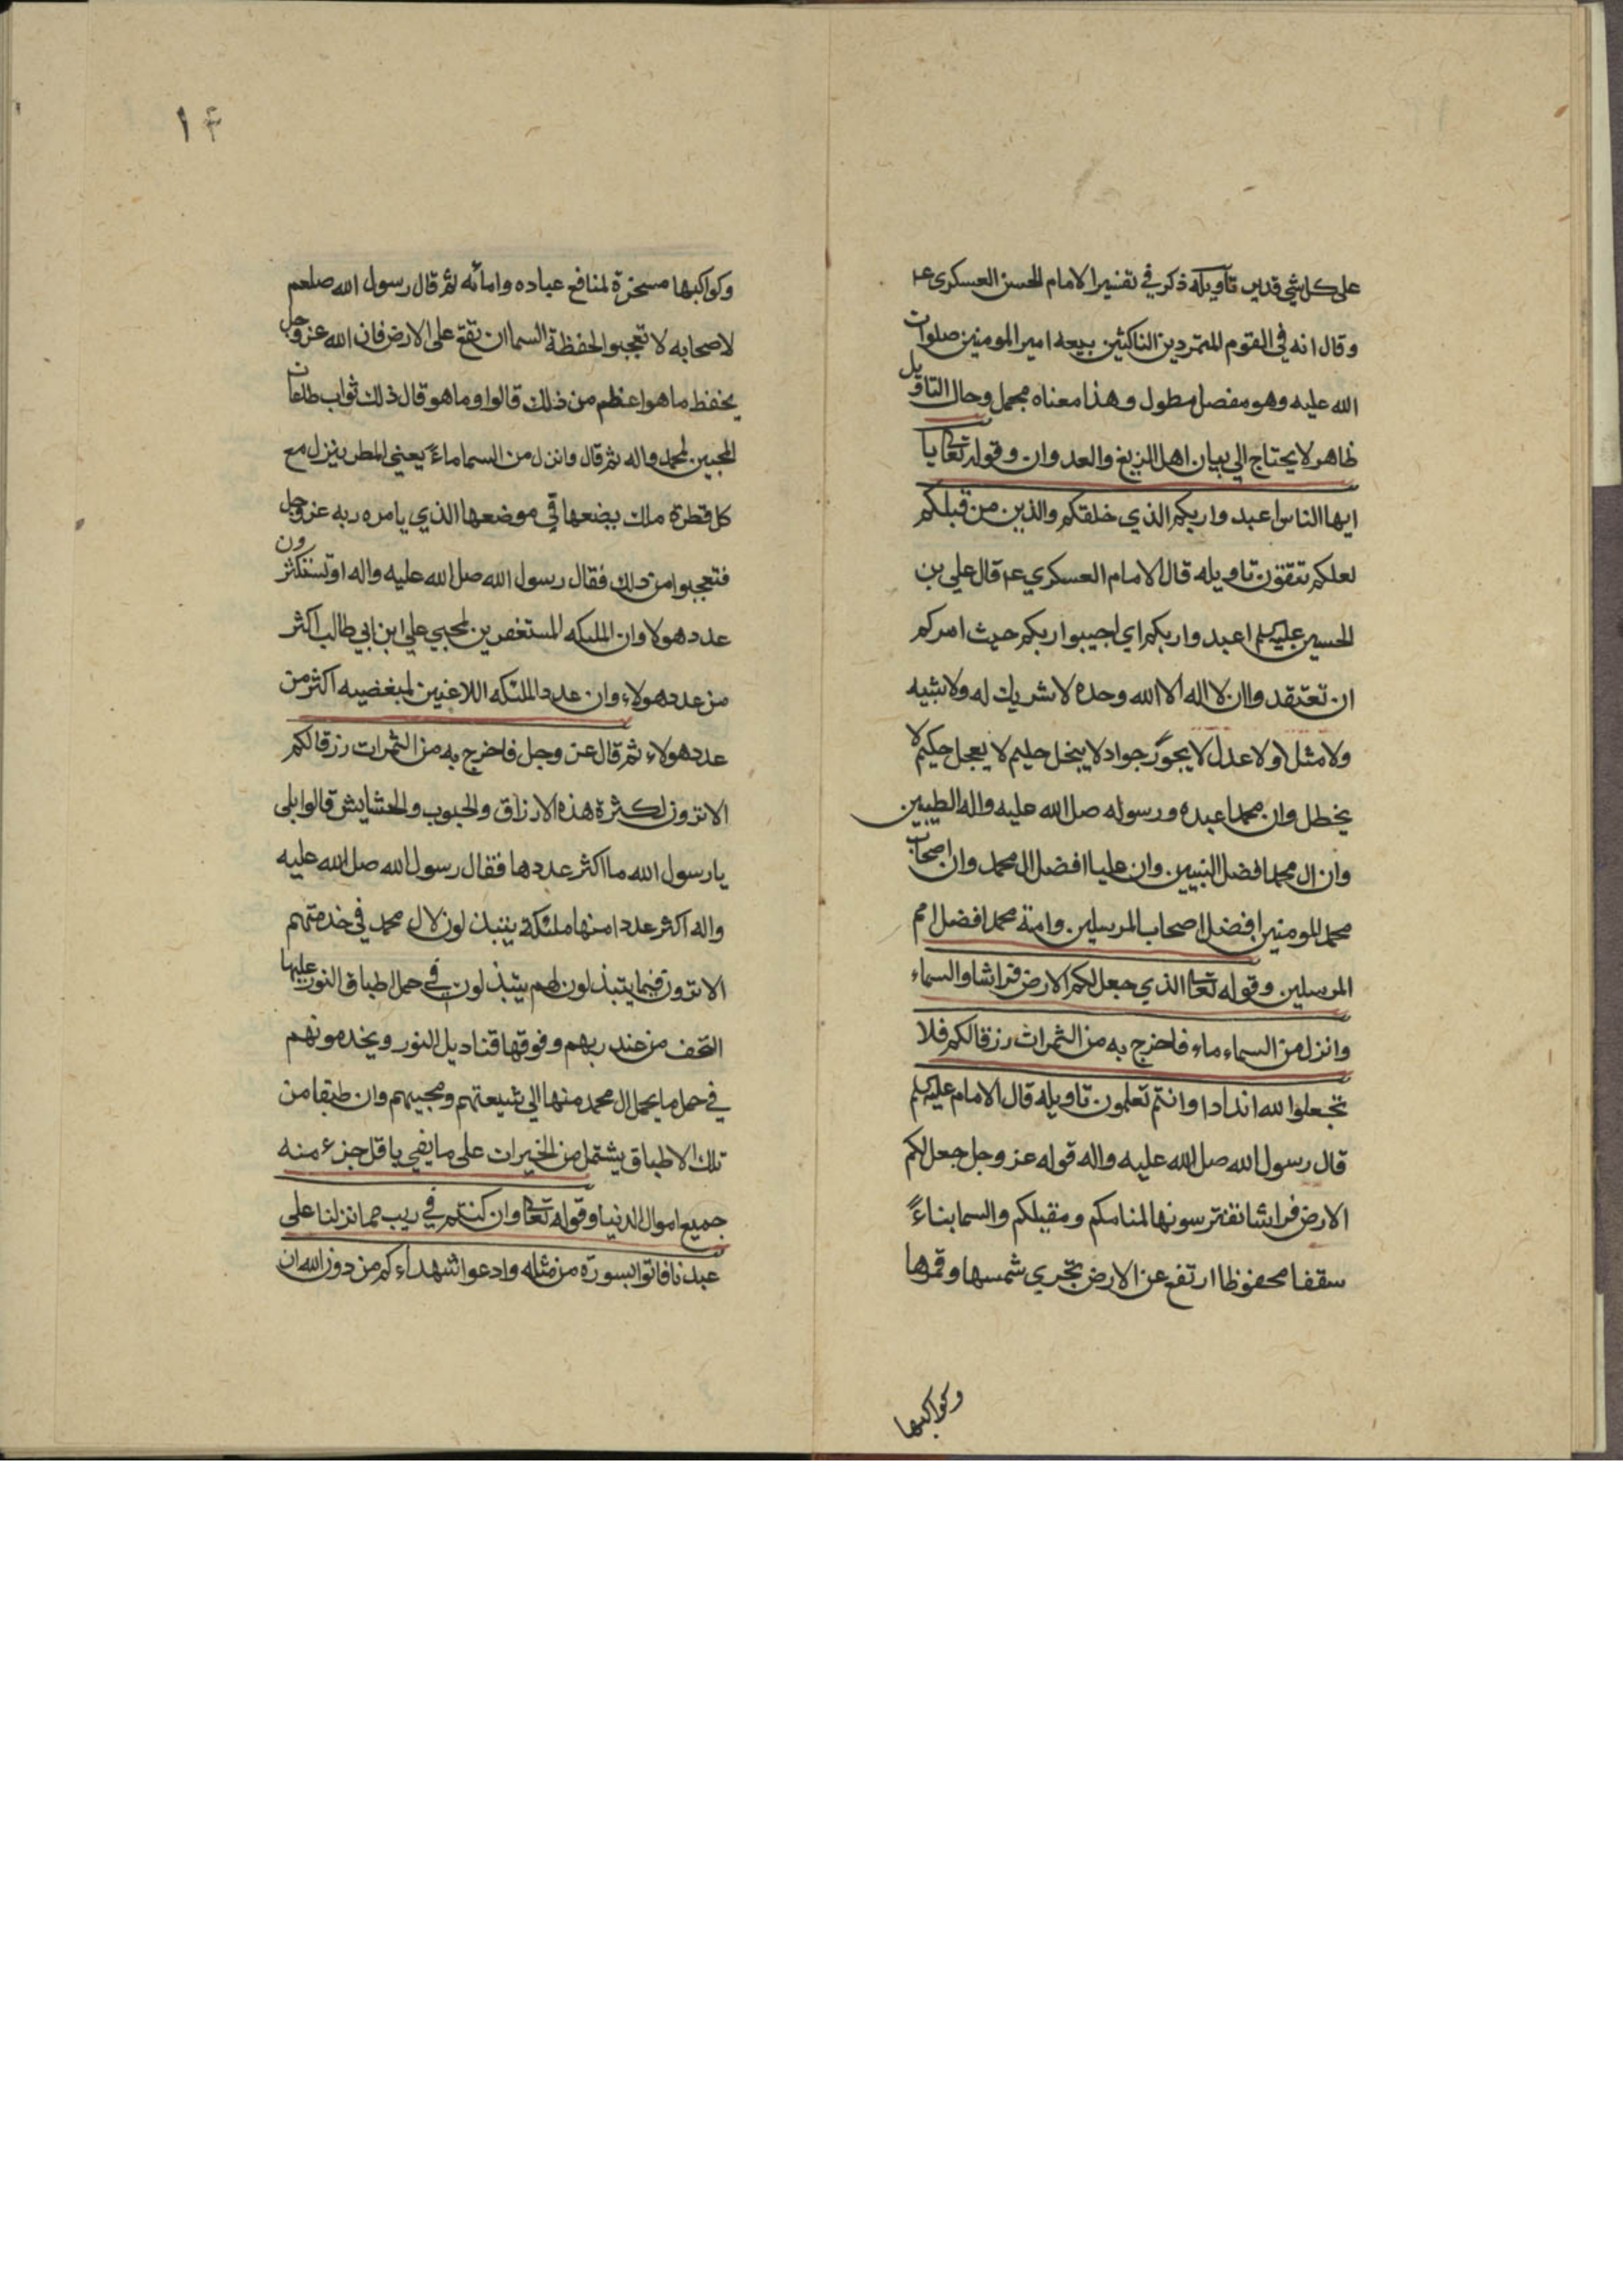 على كل شي قدير تأويله ذكر في تفسير الامام الحسن العسكري عم
وقال انه في القوم المتمردين الناكثين بيعه امير المومنين صلوات
الله عليه وهو مفصل مطول وهذا معناه مجمل وحال التاويل
ظاهر لا يحتاج الي بيان اهل الزيغ والعدوان وقوله تعا يا
ايها الناس اعبدوا ربكم الذي خلقكم والذين من قبلكم
لعلكم تتقون تاويله قال الامام العسكري عم قال علي بن
الحسين عليه سلم اعبدوا ربكم اي اجيبوا ربكم حيث امركم
ان تعتقدوا ان لا اله الا الله وحده لا شريك له ولا شبيه
ولا مثل ولا عدل لا يجوز جواد لا يبخل حليم لا يعجل حكيم لا
يخطل وان محمدا عبده ورسوله صل الله عليه واله الطيبين
وان ال محمد افضل النبيين وان عليا افضل ال محمد وان اصحاب
محمد المومنين افضل اصحاب المرسلين وامة محمد افضل امم
المرسلين وقوله تعا الذي جعل لكم الارض فراشا والسماء
وانزل من السماء ماء فاخرج به من الثمرات رزقا لكم فلا
تجعلوا لله اندادا وانتم تعلمون تاويله قال الامام عليه سلم
قال رسول الله صل الله عليه واله قوله عز وجل جعل لكم
الارض فراشا تفترسونها لمنامكم ومقيلكم والسما بناءً
سقفا محفوظا ارتفع عن الارض تجري شمسها وقمرها
وكواكبها
١٤
وكواكبها مسخرة لمنافع عباده وامائه ثم قال رسول الله صلعم
لاصحابه لا تعجبوا لحفظة السما ان تقع على الارض فان الله عز وجل
يحفظ ما هو اعظم من ذلك قالوا وما هو قال ذلك ثواب طاعات
المحبين لمحمد واله ثم قال وانزل من السما ماءً يعني المطر ينزل مع
كل قطرة ملك يضعها في موضعها الذي يامره ربه عز وجل
فتعجبوا من ذلك فقال رسول الله صل الله عليه واله اوتستكثرون
عدد هولا وان الملىكه المستغفرين لمحبي علي ابن ابي طالب اكثر
من عدد هولاء وان عدد الملئكه اللاعنين لمبغضيه اكثر من
عدد هولاء ثم قال عز وجل فاخرج به من الثمرات رزقا لكم
الا ترون لكثرة هذه الارزاق والحبوب والحشايش قالوا بلى
يا رسول الله ما اكثر عددها فقال رسول الله صل الله عليه
واله اكثر عددا منها ملئكة يتبذلون لال محمد في خدمتهم
الا ترون فيما يتبذلون لهم يتبذلون في حمل اطباق النور عليها
التحف من عند ربهم وفوقها قناديل النور ويخدمونهم
في حمل ما يحمل ال محمد منها الي شيعتهم ومحبيهم وان طبقا من
تلك الاطباق يشتمل من الخيرات على ما يفي باقل جزء منه
جميع اموال الدنيا وقوله تعا وان كنتم في ريب مما نزلنا على
عبدنا فاتوا بسورة من مثله وادعوا شهداءكم من دون الله ان